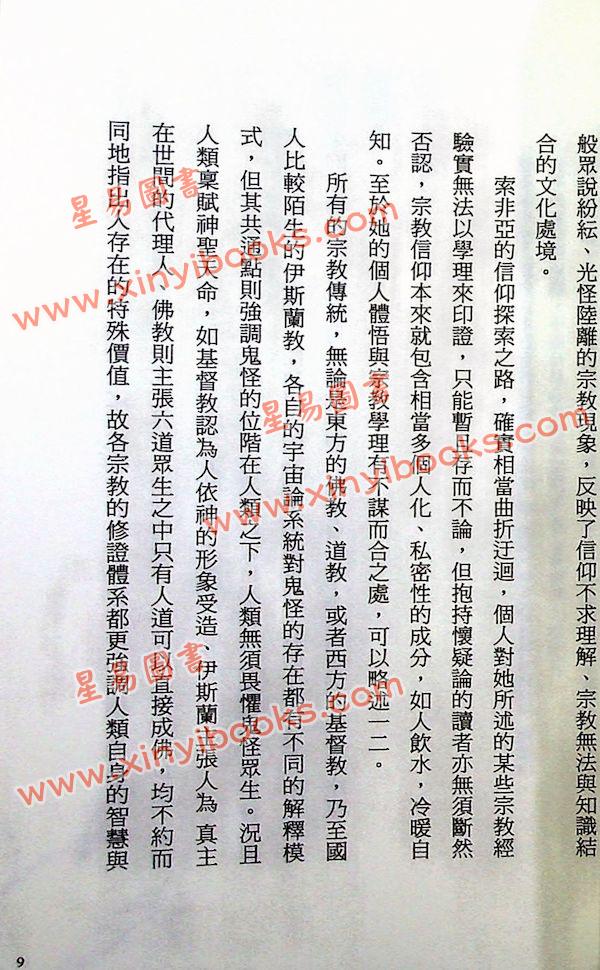 般眾說紛紜、光怪陸離的宗教現象，反映了信仰不求理解、宗教無法與知識結
合的文化處境。
索非亞的信仰探索之路，確實相當曲折迂迴，個人對她所述的某些宗教經
驗實無法以學理來印證，只能暫且存而不論，但抱持懷疑論的讀者亦無須斷然
否認，宗教信仰本來就包含相當多個人化、私密性的成分，如人飲水，冷暖自
知。至於她的個人體悟與宗教學理有不謀而合之處，可以略述一二。
所有的宗教傳統，無論是東方的佛教、道教，或者西方的基督教，乃至國
人比較陌生的伊斯蘭教，各自的宇宙論系統對鬼怪的存在都有不同的解釋模
式，但其共通點則強調鬼怪的位階在人類之下，人類無須畏懼鬼怪眾生。況且
人類稟賦神聖天命，如基督教認為人依神的形象受造、伊斯蘭主張人為 真主
在世間的代理人、佛教則主張六道眾生之中只有人道可以直接成佛，均不約而
同地指出人存在的特殊價值，故各宗教的修證體系都更強調人類自身的智慧與
9
星易圖書
www.xinyibooks.com
星易圖書
www.xinyibooks.com
星易圖書
www.xinyibooks.com